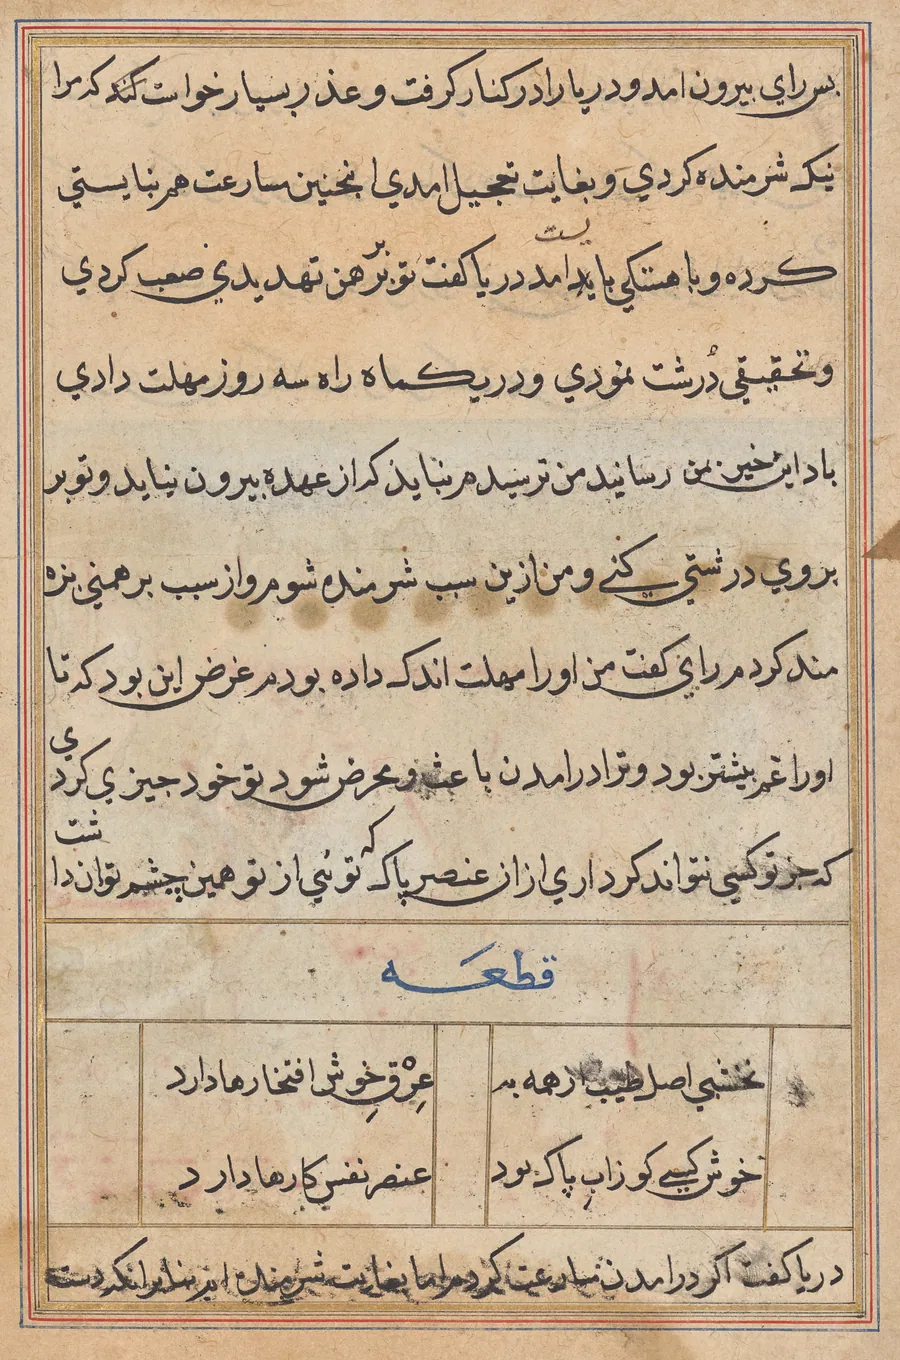 بس راي بيرون امد و دريا را در كنار كرفت و عذر بسيار خواست كند كه مرا
نيك شرمنده كردي و بغايت تعجيل امدي انجنين مسارعت هم نبايستي
يست
كرده و باهستكي بايد امد دريا كفت تو بر برهمن تهديدي صعب كردي
و تحقيقي دُرشت نمودي و در يكماه راه سه روز مهلت دادي
باد اين خبر بمن رسانيد من ترسيدم نبايد كه از عهده بيرون نيايد و تو بر
بر وي درشتي كني و من ازين سبب شرمنده شوم و از سبب برهمني بزه
مند كردم راي كفت من او را مهلت اندك داده بودم غرض اين بود كه تا
او را غم بيشتر بود و ترا در امدن باعث و محرض شود تو خود جيزي كردي
كه جز تو كسي نتواند كرد اري ازان عنصر پاك كه تو ئي از تو همين چشم توان داشت
قطعه
نخشبي اصل طيب از همه به
عِرْقِ خوش افتخارها دارد
خوش كسي كو زاب پاك بود
عنصر نفس كارها دارد
دريا كفت اكر در امدن مسارعت كردم اما بغايت شرمنده ام بنابرانكه دسته